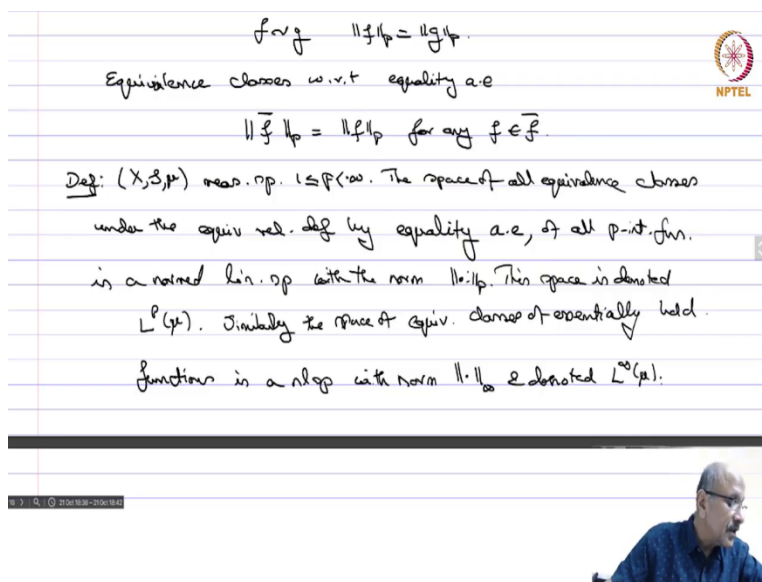 f ~ g ‖f‖p = ‖g‖p.
NPTEL
Equivalence classes w.r.t equality a.e
‖f̄‖p = ‖f‖p for any f ∈ f̄.
Def: (X,S,μ) meas. sp. 1 ≤ p < ∞. The space of all equivalence classes
under the equiv rel. def by equality a.e, of all p-int. fns.
is a normed lin. sp with the norm ‖·‖p. This space is denoted
L^p(μ). Similarly the space of equiv. classes of essentially bdd.
functions is a nlsp with norm ‖·‖∞ & denoted L^∞(μ).
21 Oct 18:38 – 21 Oct 18:42